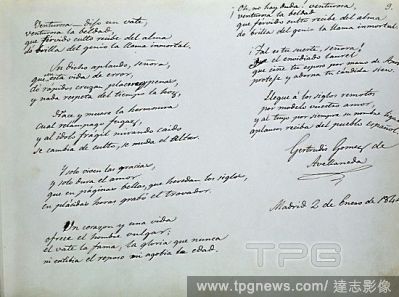 Venturosa – dijo un vate,
venturosa la beldad,
que férvido culto recibe del alma
do brilla del genio la llama inmortal.
Un dicho aplaudo, señora,
que en esta vida de error,
do rápidos cruzan placeres y penas,
y nada respeta del tiempo la hoz,
Nace y muere la hermosura
cual relámpago fugaz,
y al ídolo frágil mirando caido
se cambia de culto, se muda el altar.
Y solo viven las gracias,
y solo dura el amor
que en páginas bellas, que heredan los siglos,
en plácidas horas grabó el trovador.
Un corazon y una vida
ofrece el hombre vulgar;
el vate la fama, la gloria que nunca
ni entibia el reposo ni agobia la edad.
9.
¡Oh, no hay duda! venturosa,
venturosa la beldad
que férvido culto recibe del alma
do brilla del genio la llama inmortal.
¡Tal es tu suerte, señora!
el envidiado laurel
que ciñe tu esposo por mano de
proteje y adorna tu cándida sien.
Llegue á los siglos remotos
por modelo vuestro amor,
y al tuyo por siempre su nombre
aplausos reciba del pueblo español.
Gertrudis Gomez de
Avellaneda
Madrid 2 de Enero de
TPG
www.tpgnews.com / 達志影像